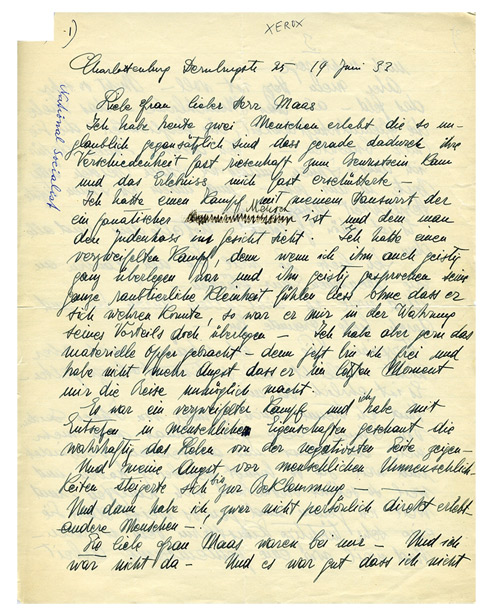 1)
XEROX
Charlottenburg Dernburgstr 25 19 Juni 33
National Socialist
Liebe Frau lieber Herr Maas
Ich habe heute zwei Menschen erlebt die so un-
glaublich gegensätzlich sind dass gerade dadurch ihre
Verschiedenheit fast riesenhaft zum Bewusstsein kam
und das Erlebniss mich fast erschütterte —
Ich hatte einen Kampf mit meinem Hauswirt der
ein fanatischer Mensch ist und dem man
den Judenhass ins Gesicht sieht. Ich hatte einen
verzweifelten Kampf, denn wenn ich ihm auch geistig
ganz überlegen war und ihm geistig gesprochen seine
ganze raubtierliche Kleinheit fühlen liess ohne dass er
sich wehren konnte, so war er mir in der Wahrung
seines Vorteils doch überlegen — Ich habe aber gern das
materielle Opfer gebracht — denn jetzt bin ich frei und
habe nicht mehr Angst dass er im letzten Moment
mir die Reise unmöglich macht.
Es war ein verzweifelter Kampf und ich habe mit
Entsetzen in menschliche Eigenschaften geschaut die
wahrhaftig das Leben von der negativsten Seite zeigen —
Und meine Angst vor menschlichen Unmenschlich-
keiten steigerte sich bis zur Beklemmung —
Und dann habe ich zwar nicht persönlich direkt erlebt
andere Menschen — !
Sie liebe Frau Maas waren bei mir — Und ich
war nicht da — Und es war gut dass ich nicht